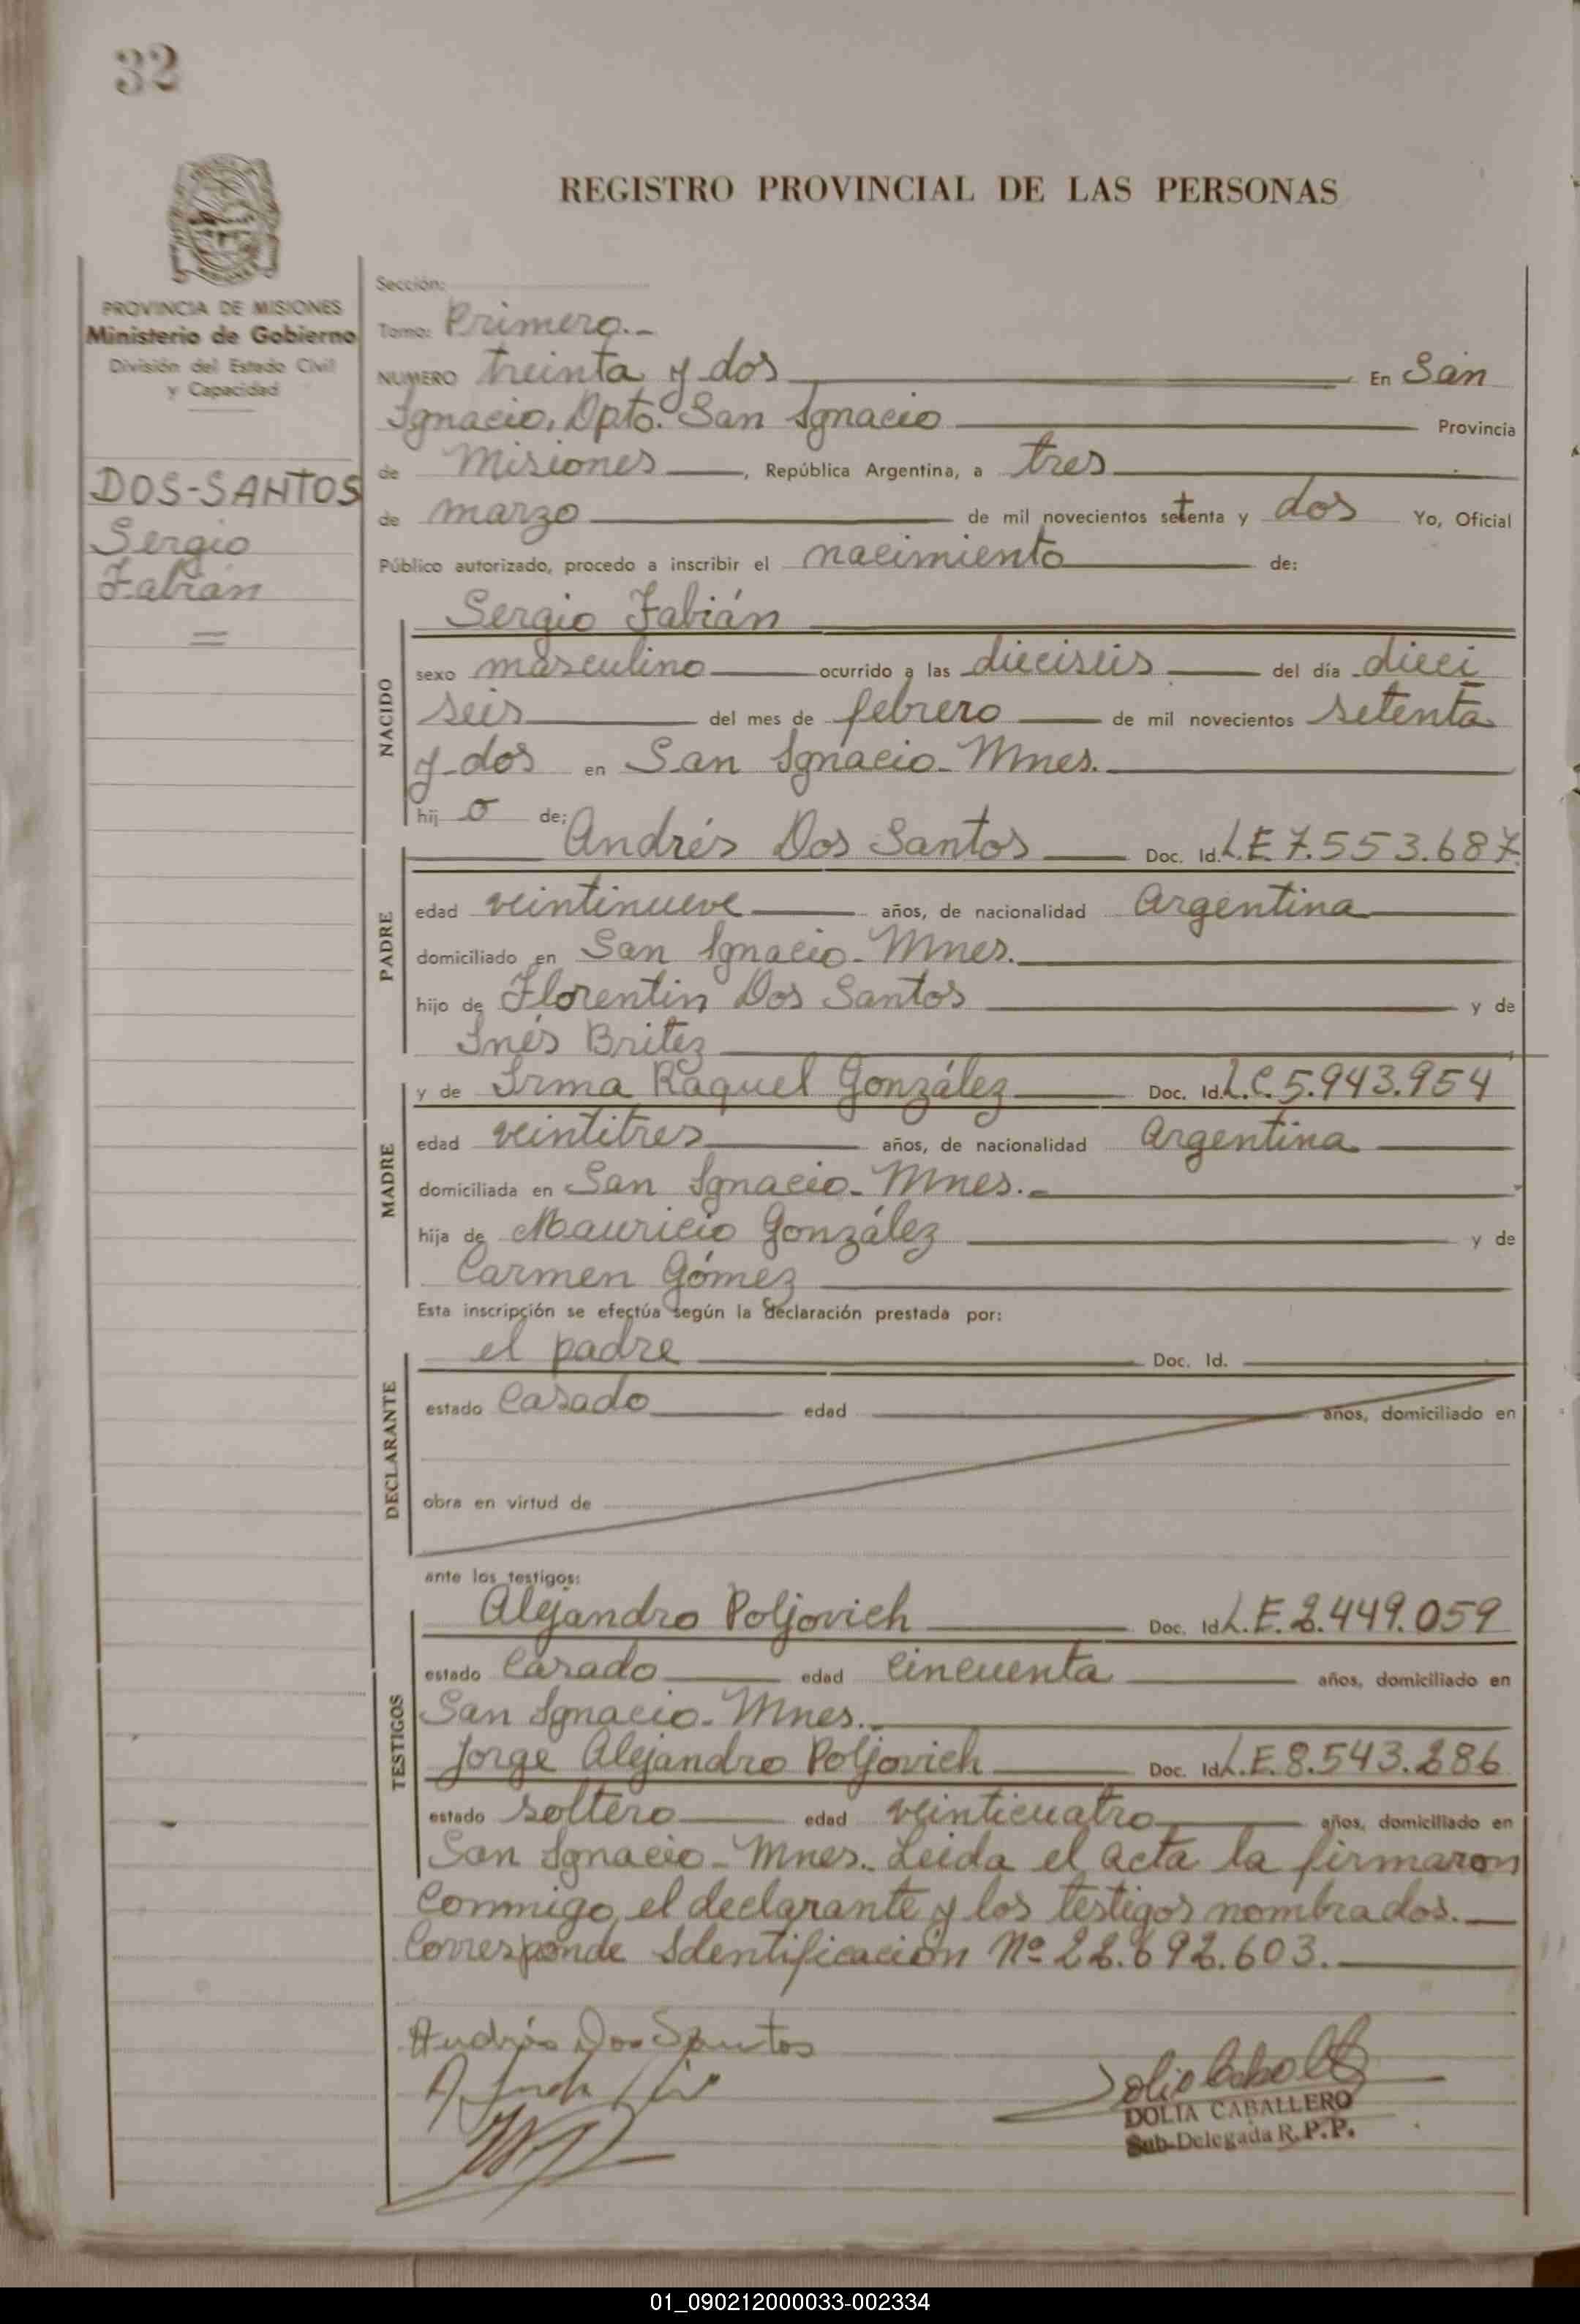 32
REGISTRO PROVINCIAL DE LAS PERSONAS
PROVINCIA DE MISIONES
Ministerio de Gobierno
División del Estado Civil
y Capacidad
DOS-SANTOS
Sergio
Fabián
Sección:
Tomo: Primero.-
NUMERO treinta y dos En San
Ignacio, Dpto. San Ignacio Provincia
de Misiones, República Argentina, a tres
de marzo de mil novecientos setenta y dos Yo, Oficial
Público autorizado, procedo a inscribir el nacimiento de:
NACIDO
Sergio Fabián
sexo masculino ocurrido a las dieciseis del día dieci
seis del mes de febrero de mil novecientos setenta
y dos en San Ignacio-Mnes.
hij o de:
PADRE
Andrés Dos Santos Doc. Id. L.E. 7.553.687
edad veintinueve años, de nacionalidad Argentina
domiciliado en San Ignacio-Mnes.
hijo de Florentin Dos Santos y de
Inés Britez
MADRE
y de Irma Raquel González Doc. Id. L.C. 5.943.954
edad veintitres años, de nacionalidad Argentina
domiciliada en San Ignacio-Mnes.-
hija de Mauricio González y de
Carmen Gómez
Esta inscripción se efectúa según la declaración prestada por:
DECLARANTE
el padre Doc. Id.
estado Casado edad años, domiciliado en
obra en virtud de
ante los testigos:
TESTIGOS
Alejandro Poljovich Doc. Id. L.E. 2.449.059
estado Casado edad cincuenta años, domiciliado en
San Ignacio-Mnes.
Jorge Alejandro Poljovich Doc. Id. L.E. 8.543.286
estado soltero edad veinticuatro años, domiciliado en
San Ignacio-Mnes. Leida el acta la firmaron
conmigo, el declarante y los testigos nombrados.
Corresponde Identificación Nº 22.692.603.
Andrés Dos Santos
DOLIA CABALLERO
Sub-Delegada R.P.P.
01_090212000033-002334